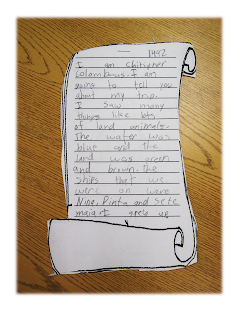 1492
I am chiticher
Colambus. I am
going to tell you
about my trip.
I saw many
things like lots
of land animals.
The water was
blue and the
land was green
and brown. the
ships that we
were on were
Nina, Pinta and